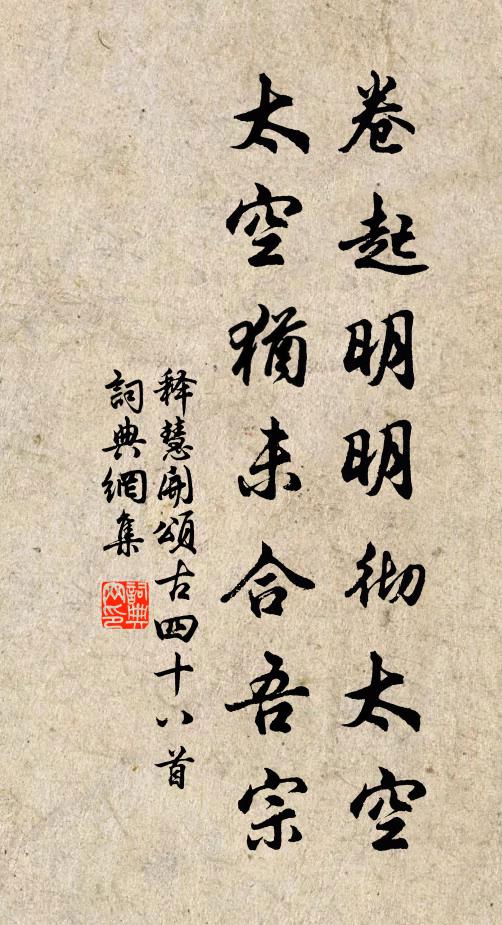 卷起明明彻太空
太空猶未合吾宗
释慧開頌古四十八首
詞典網集
詞典
网印